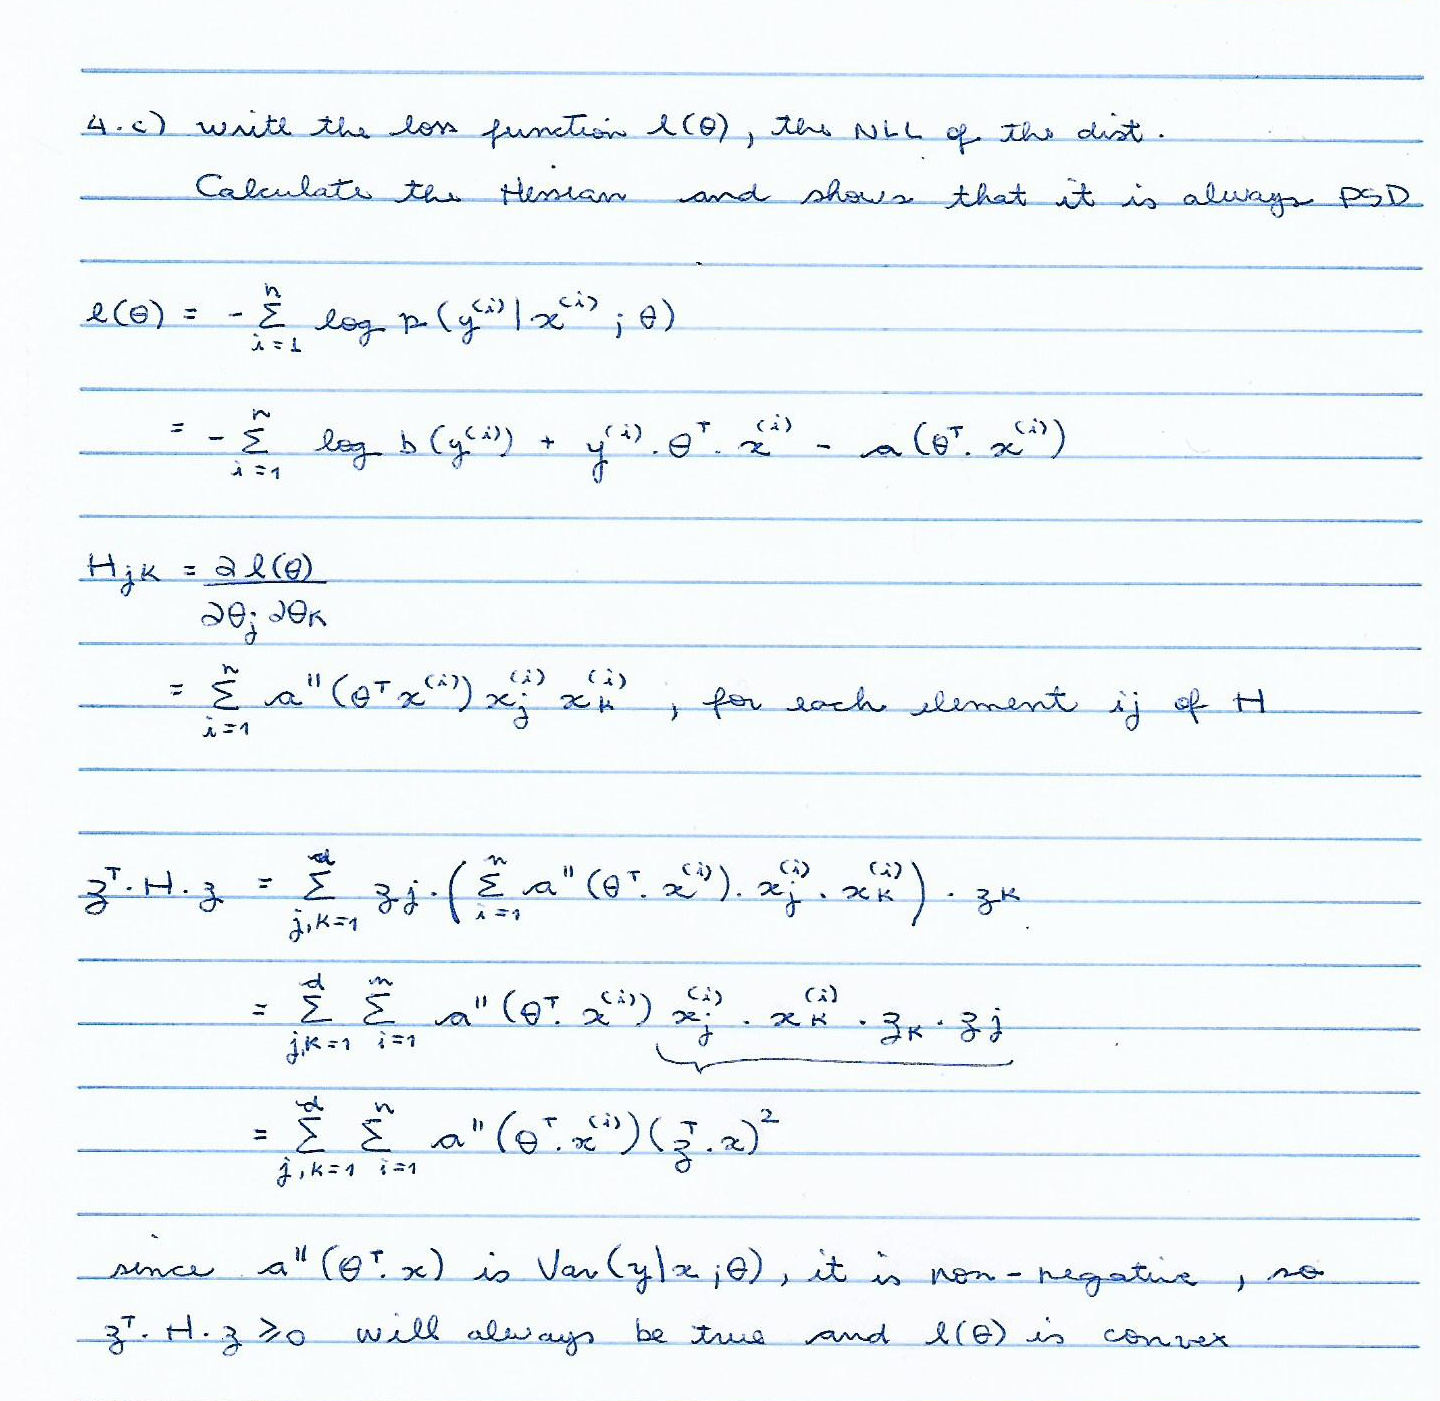 4.c) write the loss function l(θ), the NLL of the dist.
Calculate the Hessian and shows that it is always PSD
l(θ) = -∑_{i=1}^{n} log p(y^{(i)}|x^{(i)}; θ)
= -∑_{i=1}^{n} log b(y^{(i)}) + y^{(i)}.θ^T. x^{(i)} - a(θ^T. x^{(i)})
H_{jk} = ∂l(θ) / ∂θ_j ∂θ_k
= ∑_{i=1}^{n} a''(θ^T x^{(i)}) x_j^{(i)} x_k^{(i)}, for each element ij of H
z^T. H. z = ∑_{j,k=1}^{d} z_j.(∑_{i=1}^{n} a''(θ^T. x^{(i)}). x_j^{(i)}. x_k^{(i)}). z_k
= ∑_{j,k=1}^{d} ∑_{i=1}^{n} a''(θ^T. x^{(i)}) x_j^{(i)}. x_k^{(i)}. z_k. z_j
= ∑_{j,k=1}^{d} ∑_{i=1}^{n} a''(θ^T. x^{(i)})(z^T. x)^2
since a''(θ^T. x) is Var(y|x;θ), it is non-negative, so
z^T. H. z ⩾ 0 will always be true and l(θ) is convex